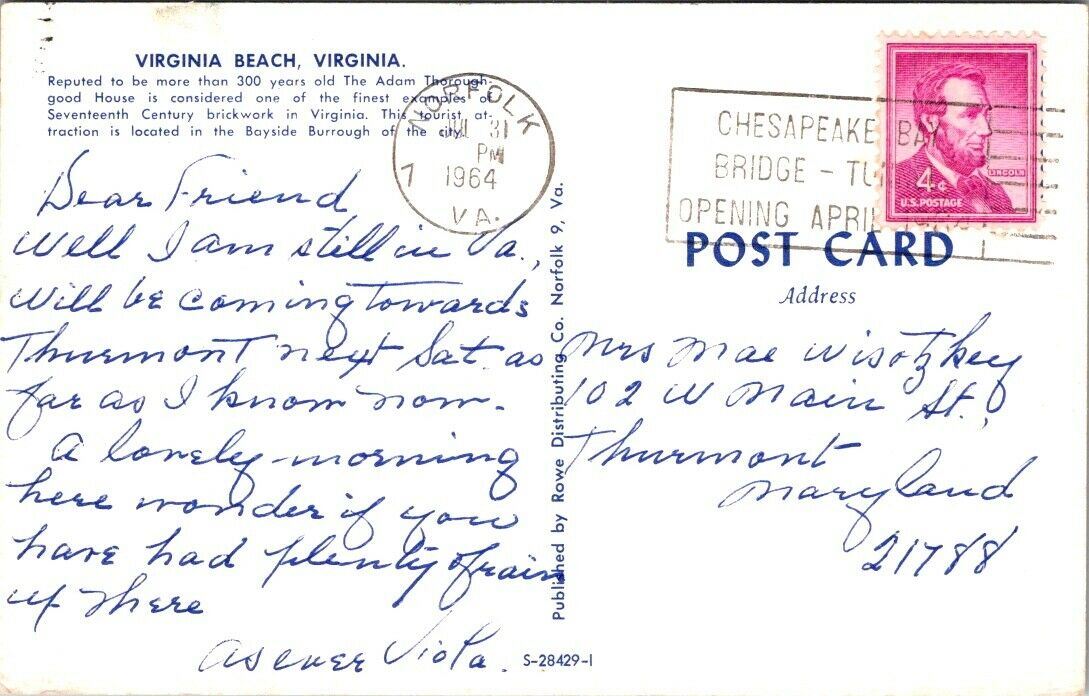 VIRGINIA BEACH, VIRGINIA.
Reputed to be more than 300 years old The Adam Thorough-
good House is considered one of the finest examples of
Seventeenth Century brickwork in Virginia. This tourist at-
traction is located in the Bayside Burrough of the city.
NORFOLK
JUL 31
PM
1964
7
VA.
CHESAPEAKE BAY
BRIDGE - TU
OPENING APRIL
4¢
LINCOLN
U.S. POSTAGE
POST CARD
Address
Dear Friend
Well I am still in Va.,
will be coming towards
Thurmont next Sat. as
far as I know now.
A lovely morning
here wonder if you
have had plenty of rain
up there
As ever Viola.
Mrs Mae Wisotzkey
102 W Main St.,
Thurmont
Maryland
21788
Published by Rowe Distributing Co. Norfolk 9, Va.
S-28429-1